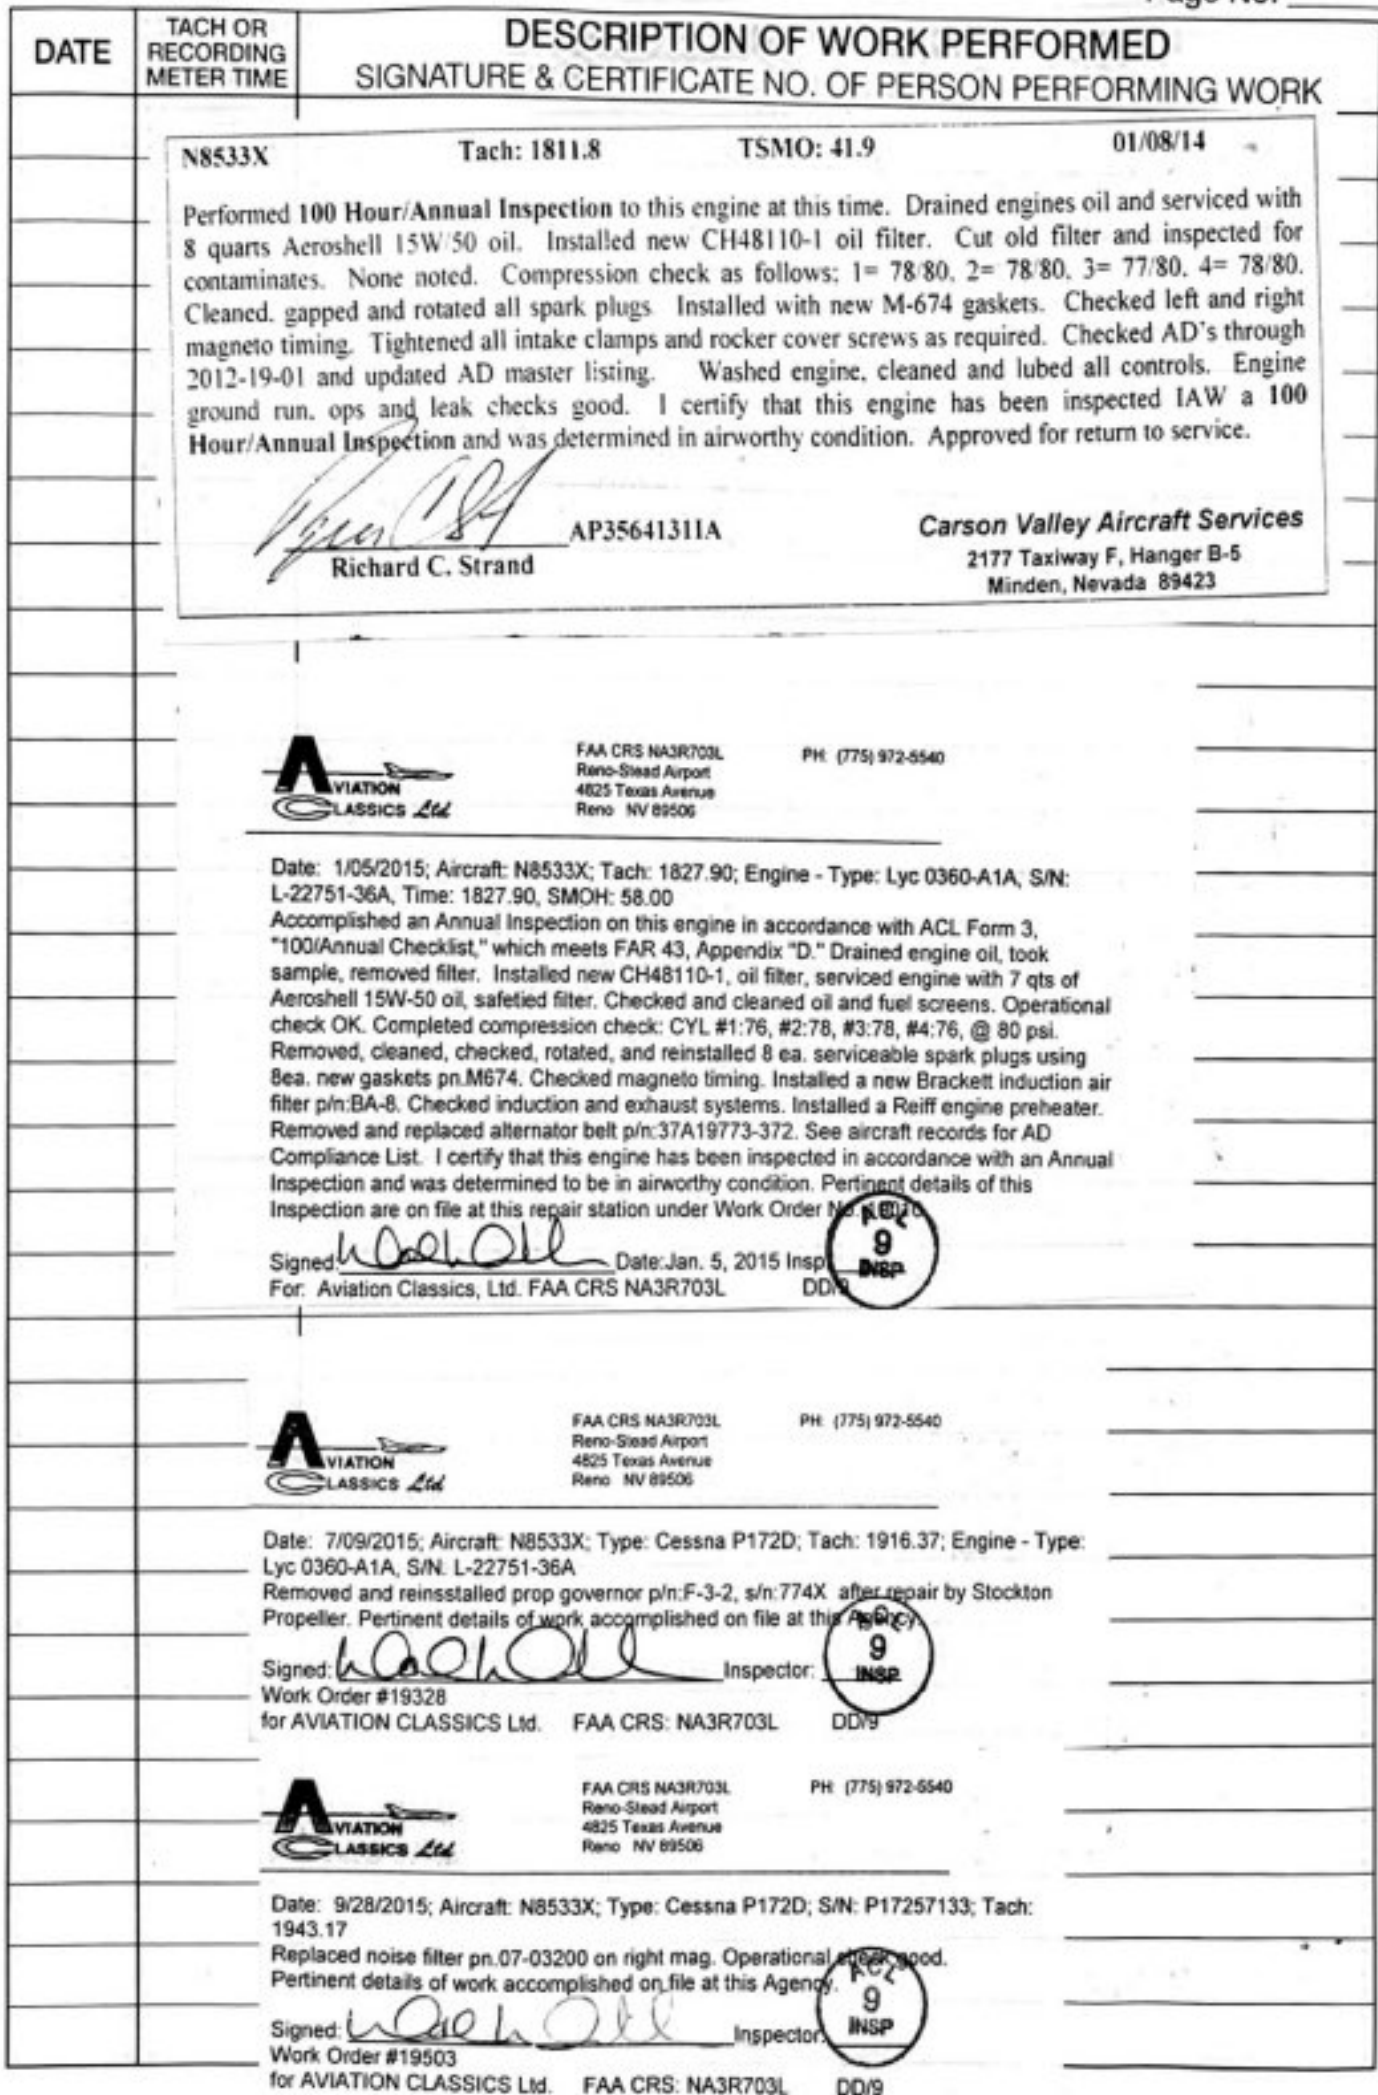 Page No.
DATE
TACH OR
RECORDING
METER TIME
DESCRIPTION OF WORK PERFORMED
SIGNATURE & CERTIFICATE NO. OF PERSON PERFORMING WORK
N8533X Tach: 1811.8 TSMO: 41.9 01/08/14
Performed 100 Hour/Annual Inspection to this engine at this time. Drained engines oil and serviced with
8 quarts Aeroshell 15W/50 oil. Installed new CH48110-1 oil filter. Cut old filter and inspected for
contaminates. None noted. Compression check as follows: 1= 78/80, 2= 78/80, 3= 77/80, 4= 78/80.
Cleaned, gapped and rotated all spark plugs. Installed with new M-674 gaskets. Checked left and right
magneto timing. Tightened all intake clamps and rocker cover screws as required. Checked AD's through
2012-19-01 and updated AD master listing. Washed engine, cleaned and lubed all controls. Engine
ground run, ops and leak checks good. I certify that this engine has been inspected IAW a 100
Hour/Annual Inspection and was determined in airworthy condition. Approved for return to service.
AP3564131IA
Richard C. Strand
Carson Valley Aircraft Services
2177 Taxiway F, Hanger B-5
Minden, Nevada 89423
AVIATION
CLASSICS Ltd
FAA CRS NA3R703L PH: (775) 972-5540
Reno-Stead Airport
4825 Texas Avenue
Reno NV 89506
Date: 1/05/2015; Aircraft: N8533X; Tach: 1827.90; Engine - Type: Lyc 0360-A1A, S/N:
L-22751-36A, Time: 1827.90, SMOH: 58.00
Accomplished an Annual Inspection on this engine in accordance with ACL Form 3,
"100/Annual Checklist," which meets FAR 43, Appendix "D." Drained engine oil, took
sample, removed filter. Installed new CH48110-1, oil filter, serviced engine with 7 qts of
Aeroshell 15W-50 oil, safetied filter. Checked and cleaned oil and fuel screens. Operational
check OK. Completed compression check: CYL #1:76, #2:78, #3:78, #4:76, @ 80 psi.
Removed, cleaned, checked, rotated, and reinstalled 8 ea. serviceable spark plugs using
8ea. new gaskets pn.M674. Checked magneto timing. Installed a new Brackett induction air
filter p/n:BA-8. Checked induction and exhaust systems. Installed a Reiff engine preheater.
Removed and replaced alternator belt p/n:37A19773-372. See aircraft records for AD
Compliance List. I certify that this engine has been inspected in accordance with an Annual
Inspection and was determined to be in airworthy condition. Pertinent details of this
Inspection are on file at this repair station under Work Order No.
Signed: Date:Jan. 5, 2015 Insp
For: Aviation Classics, Ltd. FAA CRS NA3R703L DD/9
ACL
9
INSP
AVIATION
CLASSICS Ltd
FAA CRS NA3R703L PH: (775) 972-5540
Reno-Stead Airport
4825 Texas Avenue
Reno NV 89506
Date: 7/09/2015; Aircraft: N8533X; Type: Cessna P172D; Tach: 1916.37; Engine - Type:
Lyc 0360-A1A, S/N: L-22751-36A
Removed and reinsstalled prop governor p/n:F-3-2, s/n:774X after repair by Stockton
Propeller. Pertinent details of work accomplished on file at this Agency.
Signed: Inspector:
Work Order #19328
for AVIATION CLASSICS Ltd. FAA CRS: NA3R703L DD/9
ACL
9
INSP
AVIATION
CLASSICS Ltd
FAA CRS NA3R703L PH: (775) 972-5540
Reno-Stead Airport
4825 Texas Avenue
Reno NV 89506
Date: 9/28/2015; Aircraft: N8533X; Type: Cessna P172D; S/N: P17257133; Tach:
1943.17
Replaced noise filter pn.07-03200 on right mag. Operational check good.
Pertinent details of work accomplished on file at this Agency.
Signed: Inspector:
Work Order #19503
for AVIATION CLASSICS Ltd. FAA CRS: NA3R703L DD/9
ACL
9
INSP